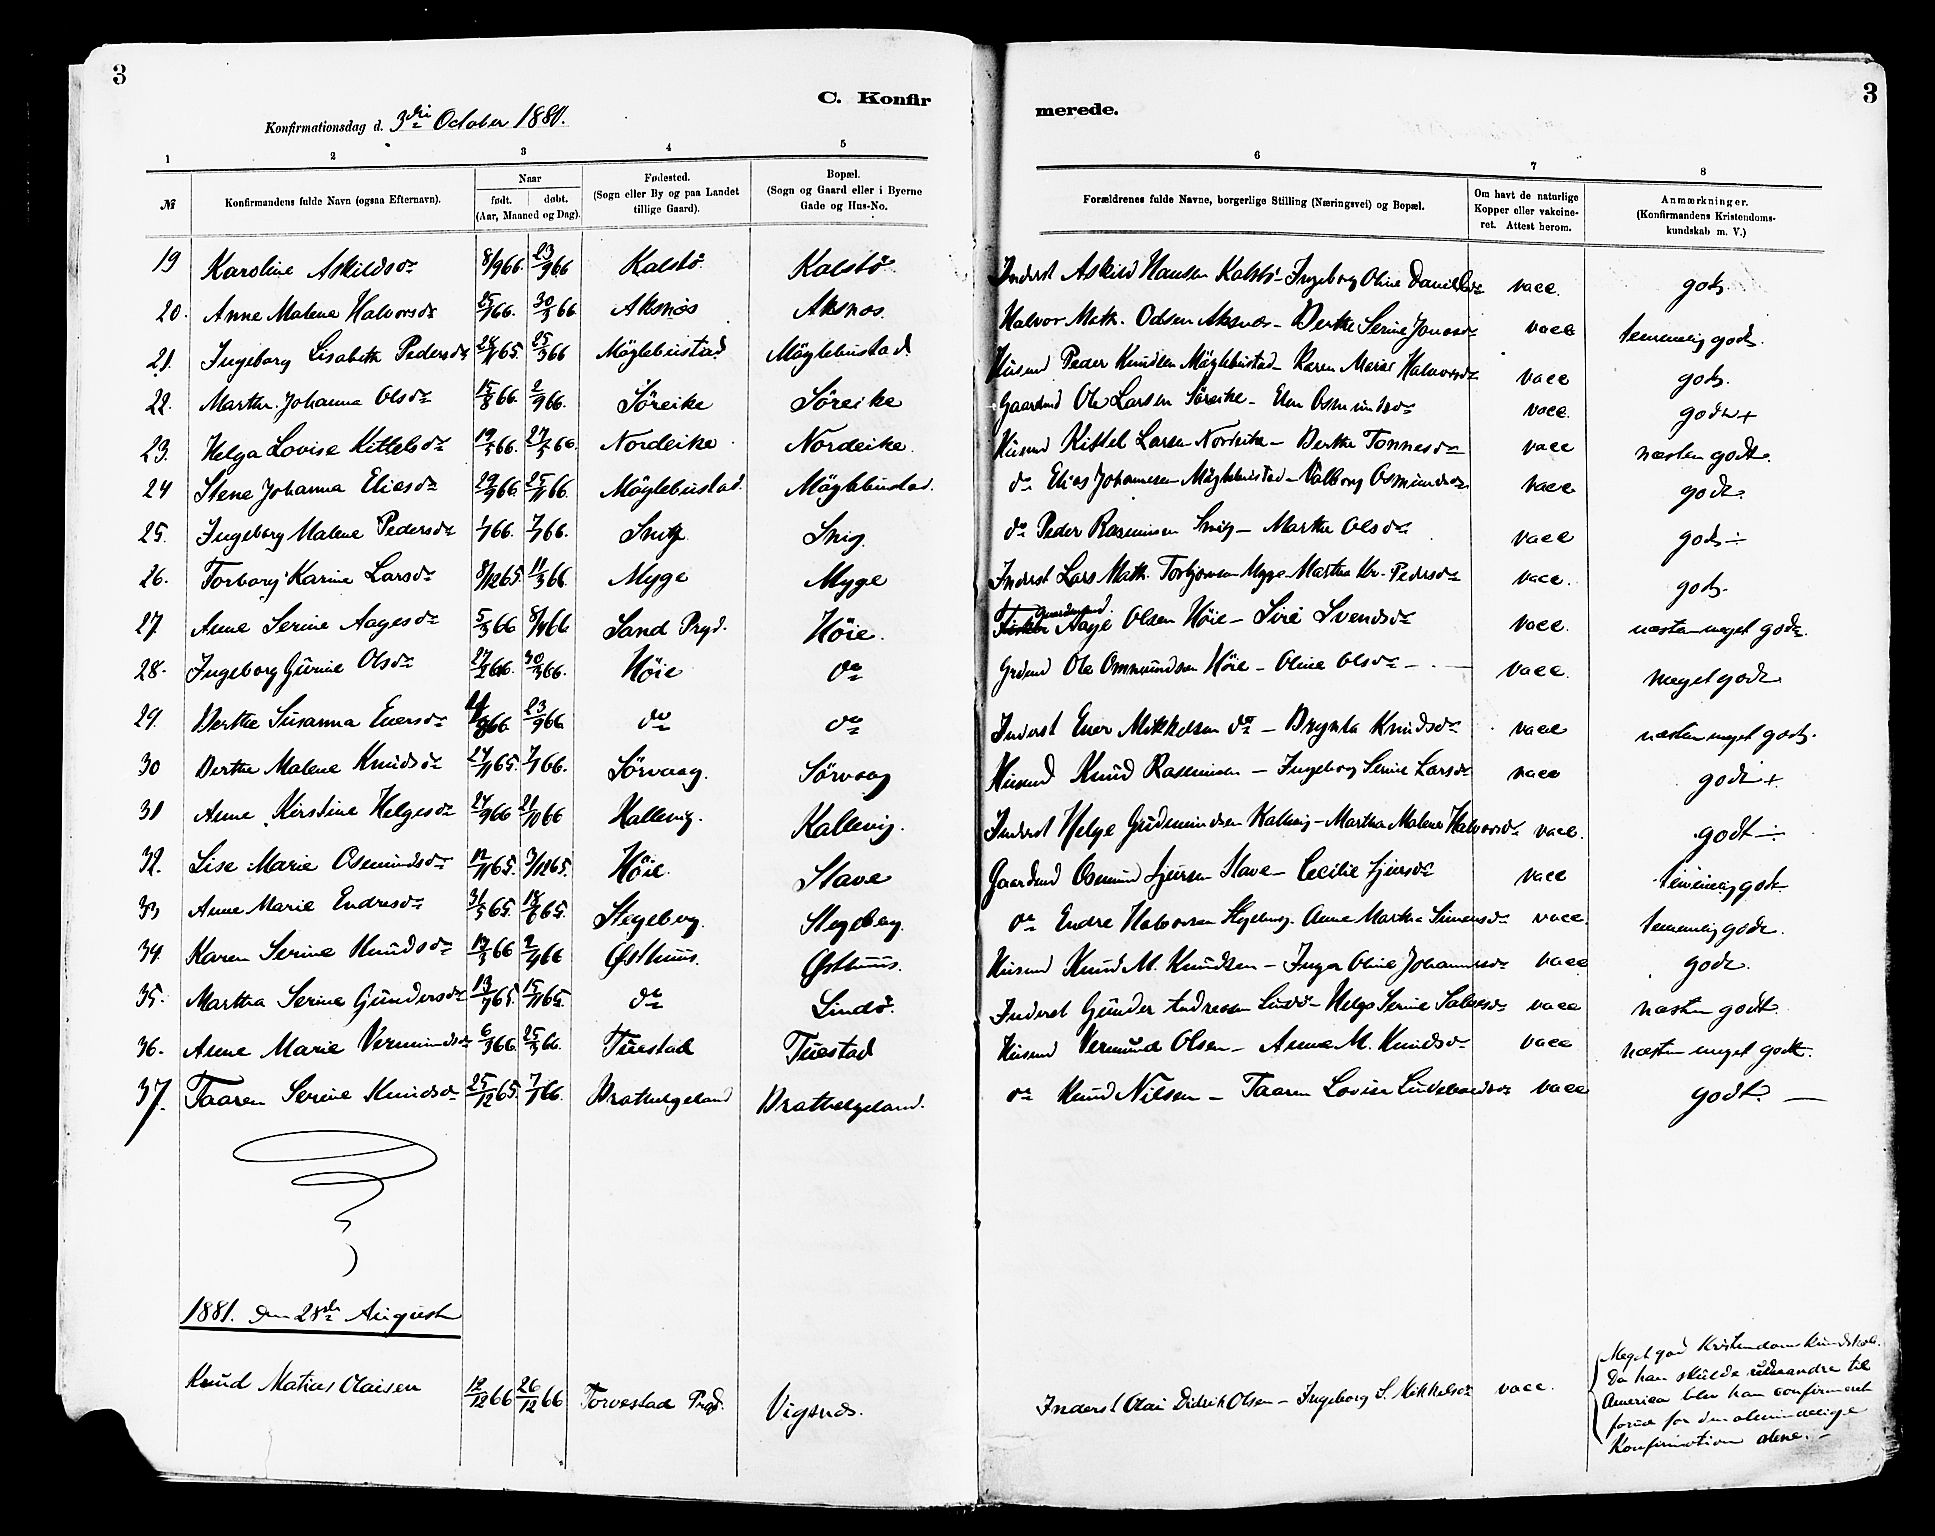 3
C. Konfir
merede.
3
Konfirmationsdag d. 3die October 1881.
1 2 3 4 5 6 7 8
№
Konfirmandens fulde Navn (ogsaa Efternavn).
Naar
født. døbt.
(Aar, Maaned og Dag).
Fødested.
(Sogn eller By og paa Landet
tillige Gaard).
Bopæl.
(Sogn og Gaard eller i Byerne
Gade og Hus-No.
Forældrenes fulde Navne, borgerlige Stilling (Næringsvei) og Bopæl.
Om havt de naturlige
Kopper eller vakcine-
ret. Attest herom.
Anmærkninger.
(Konfirmandens Kristendoms-
kundskab m. V.)
19 Karoline Askildsdr 8/9 66. 23/9 66 Kalstö. Kalstö. Inderst Askild Hansen Kalstö - Ingeborg Oline Danielsdr vacc. godt.
20. Anne Malene Halvorsdr 25/1 66. 30/3 66 Aksnæs Aksnæs. Halvor Math. Odsen Aksnæs - Berthe Serine Jonasdr vacc temmelig godt.
21. Ingeborg Lisabeth Pedersdr 28/11 65. 25/3 66 Möglebustad Möglebustad. Husmd Peder Knudsen Möglebustad - Karen Marie Halvorsdr vacc godt.
22. Marthe Johanna Olsdr 15/8 66. 2/9 66. Söreike Söreike Gaardmd Ole Larsen Söreike - Elen Osmundsdr vacc. godt +
23. Helga Lovise Kittelsdr 19/5 66. 27/5 66. Nordeike. Nordeike. Husmd Kittel Larsen Nordeike - Berthe Tonnesdr vacc næsten godt.
24 Stene Johanna Eliasdr 29/9 66. 25/11 66. Möglebustad. Möglebustad. do Elias Johannesen Möglebustad - Valborg Osmundsdr vacc godt.
25. Ingeborg Malene Pedersdr 1/1 66. 7/1 66. Snig. Snig. do Peder Rasmussen Snig - Marthe Olsdr vacc godt ÷
26. Torborg Karine Larsdr 8/12 65. 11/3 66. Myge Myge Inderst Lars Math. Torbjörnsen Myge - Martha Kr. Pedersdr vacc. godt.
27 Anne Serine Aagesdr 5/3 66 8/4 66. Sand Prgd. Höie. Gaardmand. Aage Olsen Höie - Siri Svendsdr vacc. næsten meget godt.
28. Ingeborg Gurine Olsdr 27/2 66. 30/3 66. Höie do Grdmd Ole Ommundsen Höie - Oline Olsdr - vacc. meget godt
29. Berthe Susanna Eversdr 66 23/9 66 do do Inderst Ever Mikkelsen do - Brynla Knudsdr vacc næsten meget godt.
30 Berthe Malene Knudsdr 27/11 65. 7/1 66. Sörvaag. Sörvaag Husmd Knud Rasmussen - Ingeborg Serine Larsdr vacc godt +
31 Anne Kirstine Helgesdr 24/9 66 21/10 66 Kallevig. Kallevig. Inderst Helge Gudmundsen Kallevig - Martha Malene Halvorsdr vacc. godt ÷
32. Lise Marie Osmundsdr 12/11 65. 3/12 65. Höie. Stave Gaardmd Osmund Sjursen Stave - Cecilie Sjursdr vacc temmelig godt
33 Anne Marie Endresdr 31/5 65. 18/6 65. Stegeberg. Stegeberg. do Endre Halvorsen Stegeberg. Anne Martha Simonsdr vacc. temmelig godt.
34. Karen Serine Knudsdr 17/3 66 2/4 66 Østhuus. Østhuus. Husmd Knud M. Knudsen - Inger Oline Johannesdr vacc godt.
35. Martha Serine Gundersdr 13/9 65. 15/11 65. do Lindö. Inderst Gunder Andreasen Lindö - Helga Serine Salvesdr vacc næsten godt
36. Anne Marie Vermundsdr 6/3 66. 25/3 66. Tuestad Tuestad Husmd Vermund Olsen - Anne M. Knudsdr vacc næsten meget godt.
37. Taaren Serine Knudsdr 25/12 65 7/1 66. Brathelgeland Brathelgeland. do Knud Nilsen - Taaren Lovise vacc godt. —
1881. den 28de August
Knud Matias Olaisen 12/12 66 26/12 66 Torvestad Prgd. Vigsnæs. Inderst Olai Didrik Olsen - Ingeborg S. Mikkelsdr vacc.
Meget god Kristendomskundskab.
Da han skulde udvandre til
America blev han confirmeret
forud for den almindelige
Konfirmation alene. -